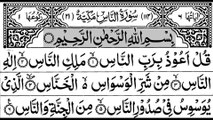 سُوْرَةُ النَّاسِ مَدَنِيَّةٌ
بِسْمِ اللهِ الرَّحْمٰنِ الرَّحِيْمِ
قُلْ اَعُوْذُ بِرَبِّ النَّاسِ مَلِكِ النَّاسِ اِلٰهِ
النَّاسِ مِنْ شَرِّ الْوَسْوَاسِ الْخَنَّاسِ الَّذِيْ
يُوَسْوِسُ فِيْ صُدُوْرِ النَّاسِ مِنَ الْجِنَّةِ وَالنَّاسِ